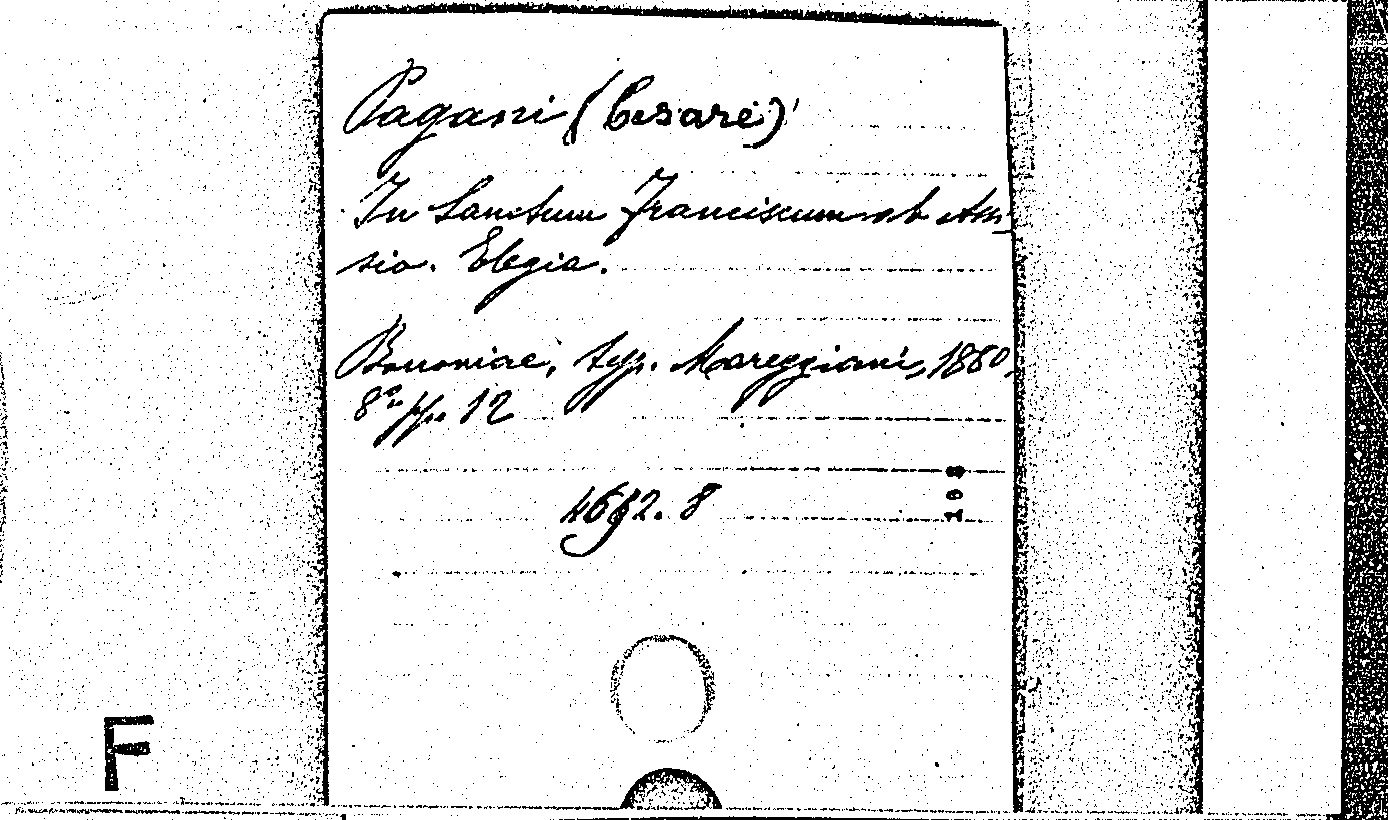 Pagani (Cesare)
In Sanctum Franciscum ab Assi-
sio. Elegia.
Bononiae, typ. Mareggiani, 1880,
8°. pp. 12
8
103
F